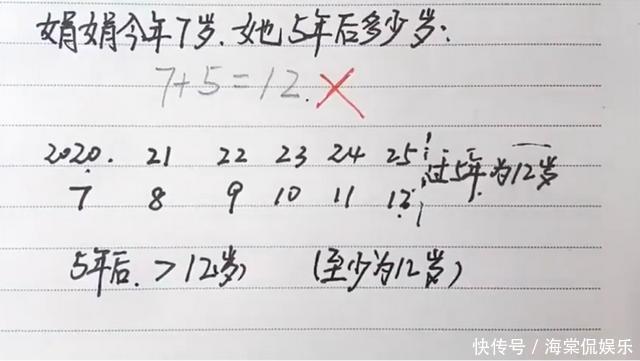 娟娟今年7岁.她5年后多少岁:
7+5=12. ×
2020. 21 22 23 24 25 过5年为12岁
7 8 9 10 11 12
5年后. >12(岁) (至少为12岁)
快传号/海棠侃娱乐